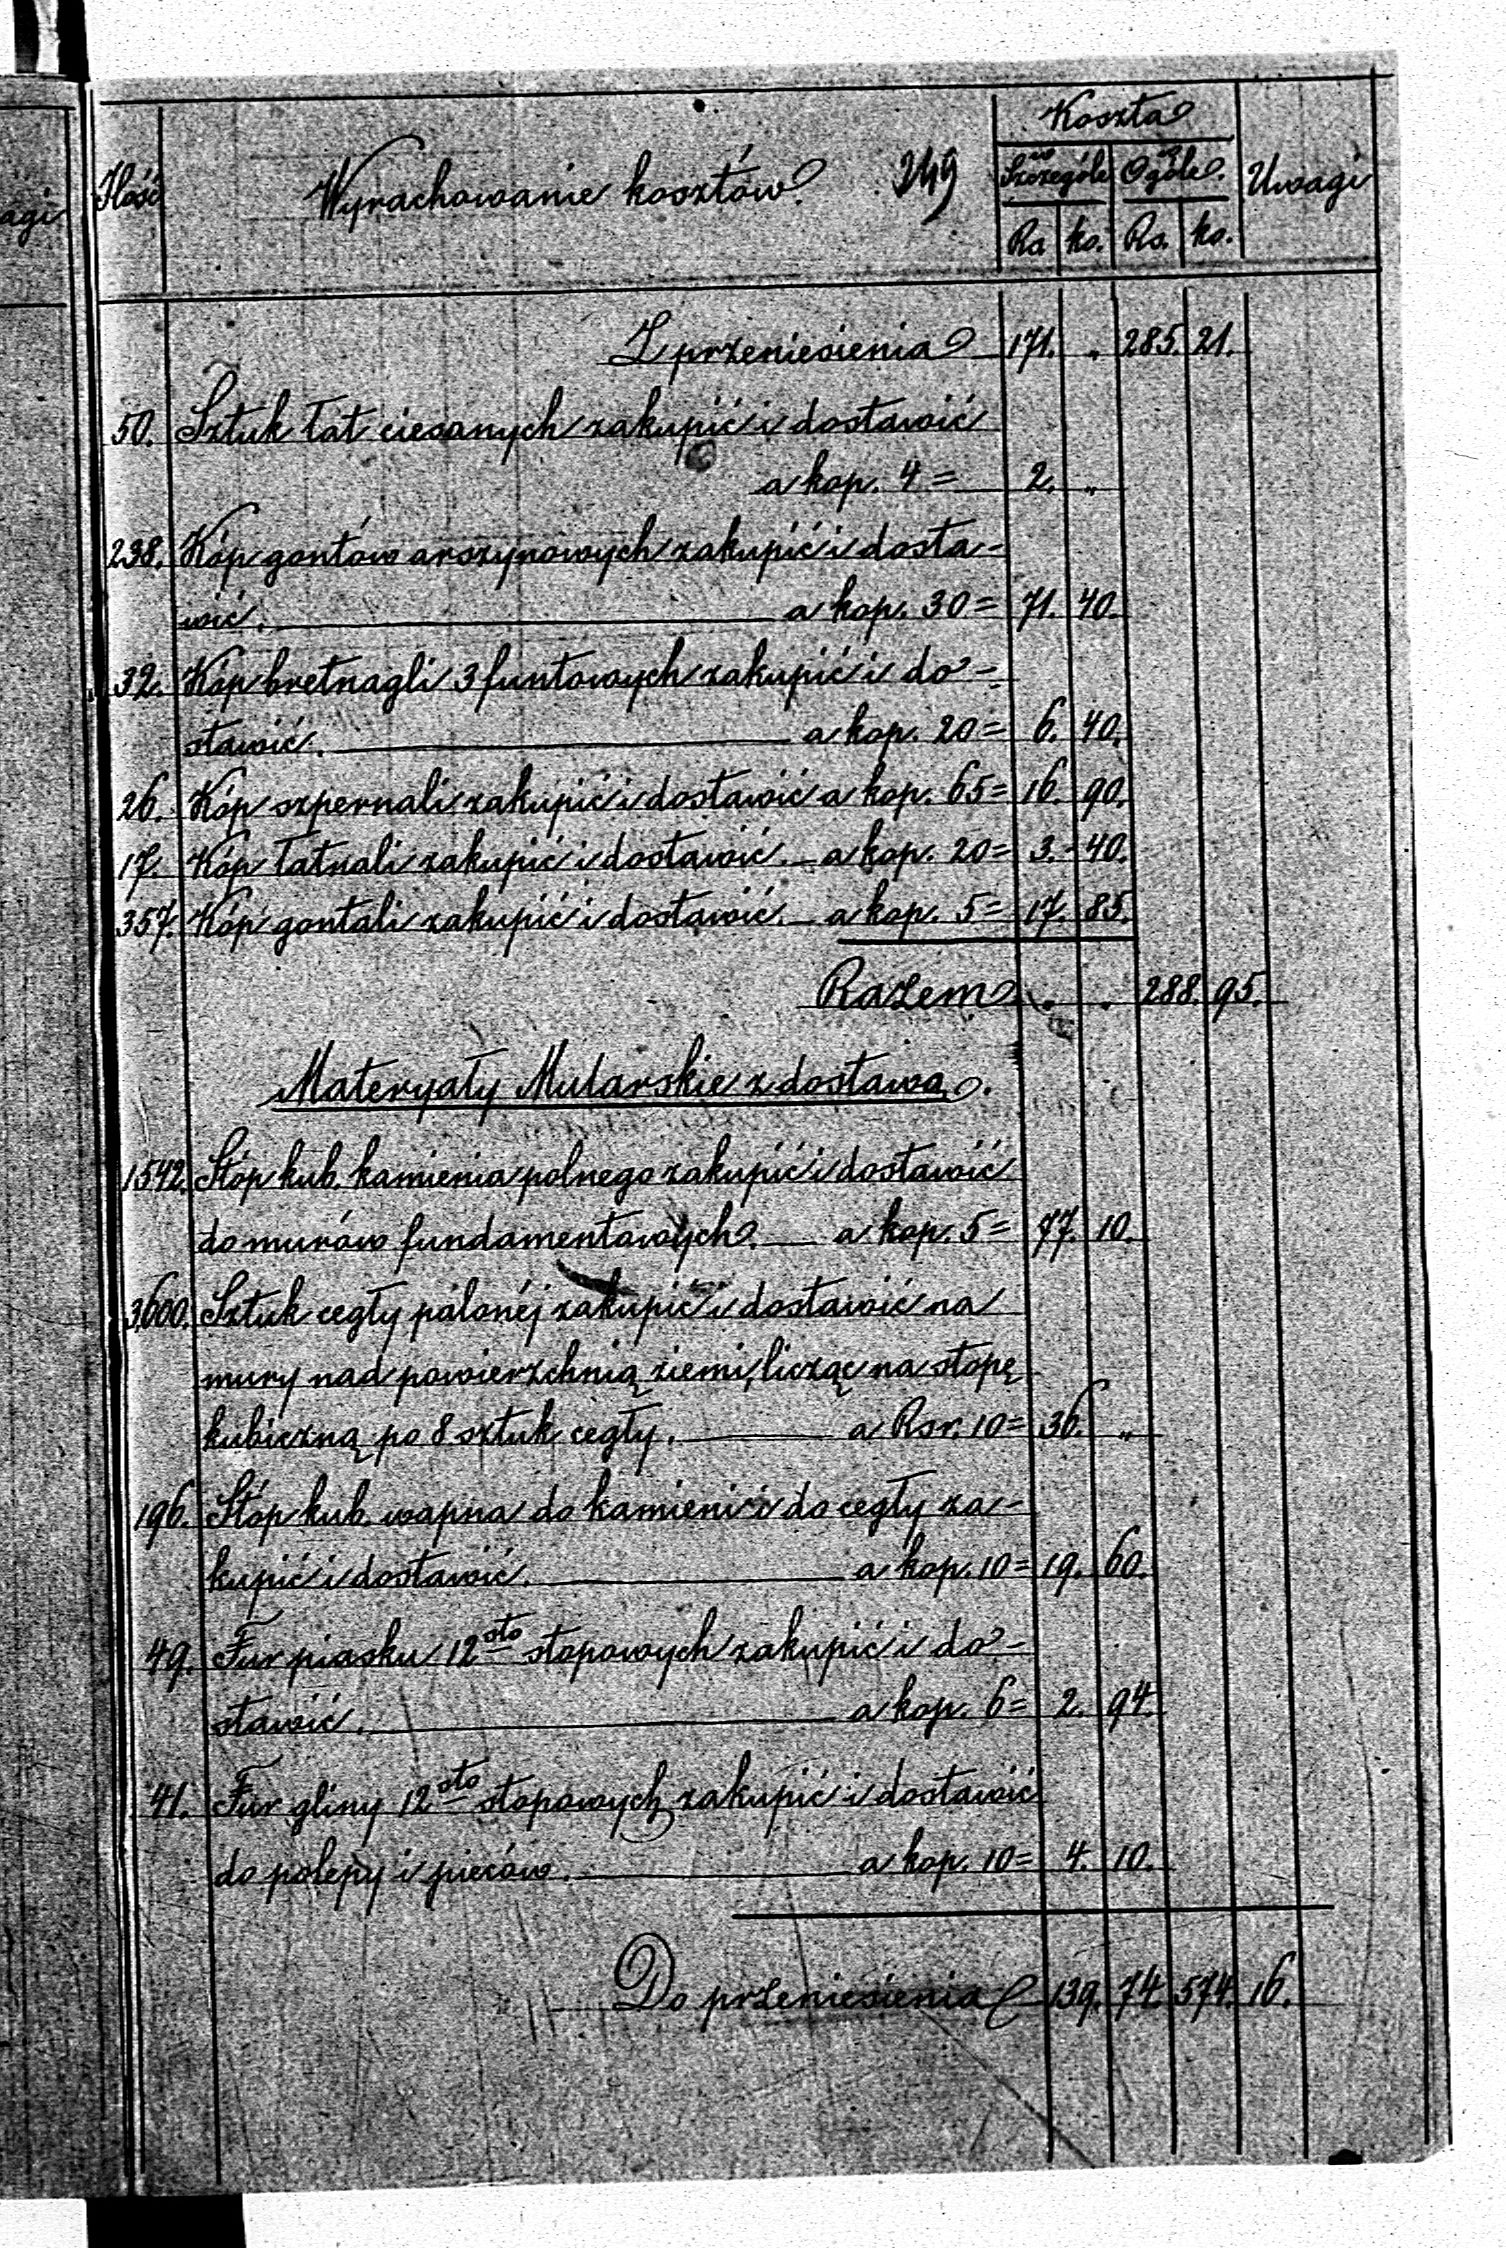 agi
Ilość Wyrachowanie kosztów. 249 Koszta Uwagi
w Szczególe w Ogóle.
Rs ko. Rs. ko.
Z przeniesienia 171. „ 285. 21.
50. Sztuk łat ciesanych zakupić i dostawić
a kop. 4 = 2. „
238. Kóp gontów arszynowych zakupić i dosta-
wić. a kop. 30 = 71. 40.
32. Kóp bretnagli 3 funtowych zakupić i do-
stawić. a kop. 20 = 6. 40.
26. Kóp szpernali zakupić i dostawić a kop. 65 = 16. 90.
17. Kóp łatnali zakupić i dostawić. a kop. 20 = 3. 40.
357. Kóp gontali zakupić i dostawić. a kop. 5 = 17. 85.
Razem . . 288. 95.
Materyały Mularskie z dostawą.
1542. Stóp kub. kamienia polnego zakupić i dostawić
do murów fundamentowych. a kop. 5 = 77. 10.
3,600. Sztuk cegły palonéj zakupić i dostawić na
mury nad powierzchnią ziemi, licząc na stopę
kubiczną po 8 sztuk cegły. a Rsr. 10 = 36. „
196. Stóp kub. wapna do kamieni i do cegły za-
kupić i dostawić. a kop. 10 = 19. 60.
49. Fur piasku 12sto stopowych zakupić i do-
stawić. a kop. 6 = 2. 94.
41. Fur gliny 12sto stopowych zakupić i dostawić
do polepy i pieców. a kop. 10 = 4. 10.
Do przeniesienia 139. 74. 574. 16.